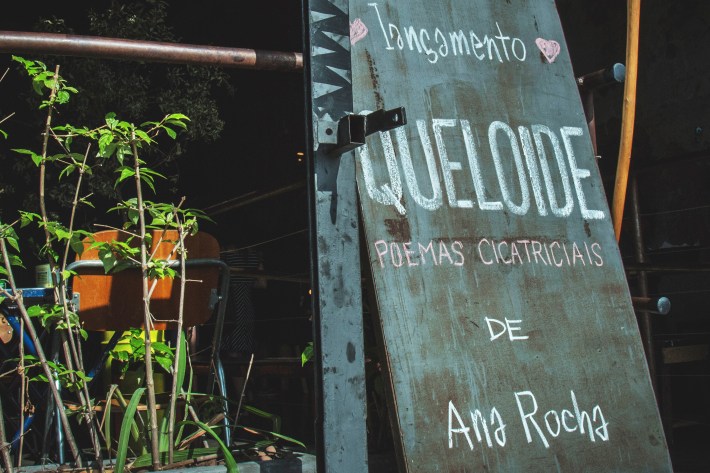 lançamento
QUELOIDE
POEMAS CICATRICIAIS
DE
Ana Rocha